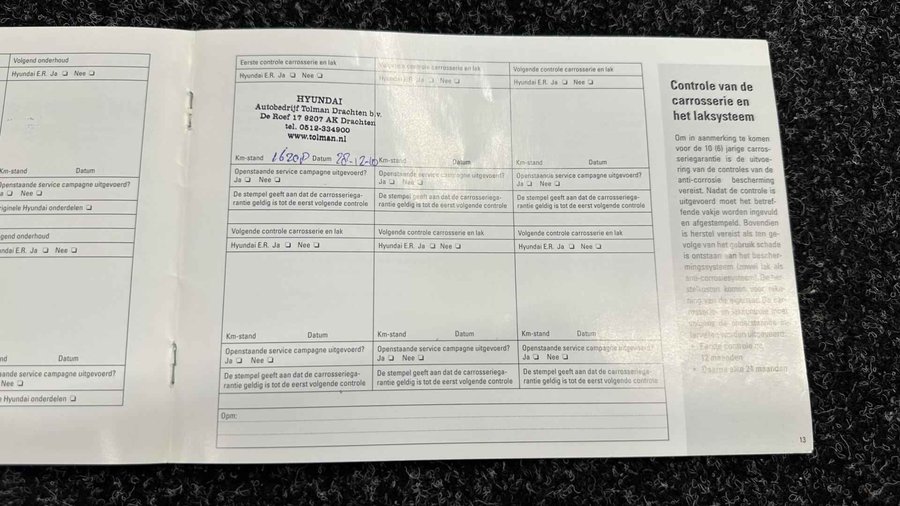 Volgend onderhoud
Hyundai E.R. Ja ❏ Nee ❏
Km-stand Datum
Openstaande service campagne uitgevoerd?
Ja ❏ Nee ❏
Originele Hyundai onderdelen ❏
Volgend onderhoud
Hyundai E.R. Ja ❏ Nee ❏
Datum
Openstaande service campagne uitgevoerd?
Nee ❏
Hyundai onderdelen ❏
Eerste controle carrosserie en lak
Hyundai E.R. Ja ❏ Nee ❏
HYUNDAI
Autobedrijf Tolman Drachten b.v.
De Roef 17 9207 AK Drachten
tel. 0512-334900
www.tolman.nl
Km-stand Datum 28-12-10
Openstaande service campagne uitgevoerd?
Ja ❏ Nee ❏
De stempel geeft aan dat de carrosseriega-
rantie geldig is tot de eerst volgende controle
Volgende controle carrosserie en lak
Hyundai E.R. Ja ❏ Nee ❏
Km-stand Datum
Openstaande service campagne uitgevoerd?
Ja ❏ Nee ❏
De stempel geeft aan dat de carrosseriega-
rantie geldig is tot de eerst volgende controle
Volgende controle carrosserie en lak
Hyundai E.R. Ja ❏ Nee ❏
Km-stand Datum
Openstaande service campagne uitgevoerd?
Ja ❏ Nee ❏
De stempel geeft aan dat de carrosseriega-
rantie geldig is tot de eerst volgende controle
Volgende controle carrosserie en lak
Hyundai E.R. Ja ❏ Nee ❏
Km-stand Datum
Openstaande service campagne uitgevoerd?
Ja ❏ Nee ❏
De stempel geeft aan dat de carrosseriega-
rantie geldig is tot de eerst volgende controle
Volgende controle carrosserie en lak
Hyundai E.R. Ja ❏ Nee ❏
Km-stand Datum
Openstaande service campagne uitgevoerd?
Ja ❏ Nee ❏
De stempel geeft aan dat de carrosseriega-
rantie geldig is tot de eerst volgende controle
Volgende controle carrosserie en lak
Hyundai E.R. Ja ❏ Nee ❏
Km-stand Datum
Openstaande service campagne uitgevoerd?
Ja ❏ Nee ❏
De stempel geeft aan dat de carrosseriega-
rantie geldig is tot de eerst volgende controle
Opm:
Controle van de
carrosserie en
het laksysteem
Om in aanmerking te komen
voor de 10 (6) jarige carros-
seriegarantie is de uitvoe-
ring van de controles van de
anti-corrosie bescherming
vereist. Nadat de controle is
uitgevoerd moet het betref-
fende vakje worden ingevuld
en afgestempeld. Bovendien
is herstel vereist als ten ge-
volge van het gebruik schade
is ontstaan aan het bescher-
mingssysteem (zowel lak als
anti-corrosiesysteem). De her-
stelkosten komen voor reke-
ning van de eigenaar. De car-
rosserie- en lakkontrole moet
volgens de onderstaande in-
tervallen worden uitgevoerd:
• Eerste controle na
12 maanden
• Daarna elke 24 maanden
13